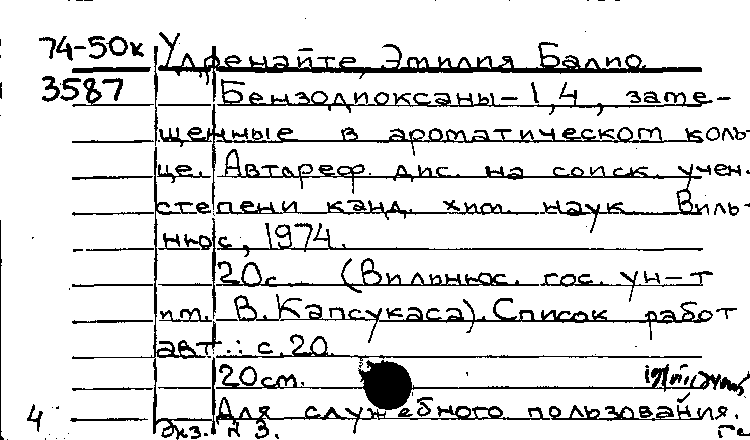 74-50к Удренайте, Эмилия Балио
3587 Бензодиоксаны-1,4, заме-
щенные в ароматическом коль-
це. Автореф. дис. на соиск. учен.
степени канд. хим. наук Виль-
нюс, 1974.
20с (Вильнюс. гос. ун-т
им. В. Капсукаса). Список работ
авт.: с. 20.
20см.
4 Для служебного пользования.
Экз. N 3.